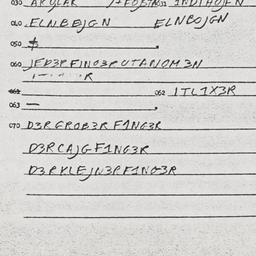 030 APYLAR
032 INDIHOJEN
040 ELNBBJGN ELNBOJGN
050 $ .
060 JED3RFINO3RUTANOM3N
R
061 062 ITL1X3R
063 — .
070 D3RGROB3RF1NG3R
D3RCAJGF1NG3R
D3RKLEJN3RF1NG3R